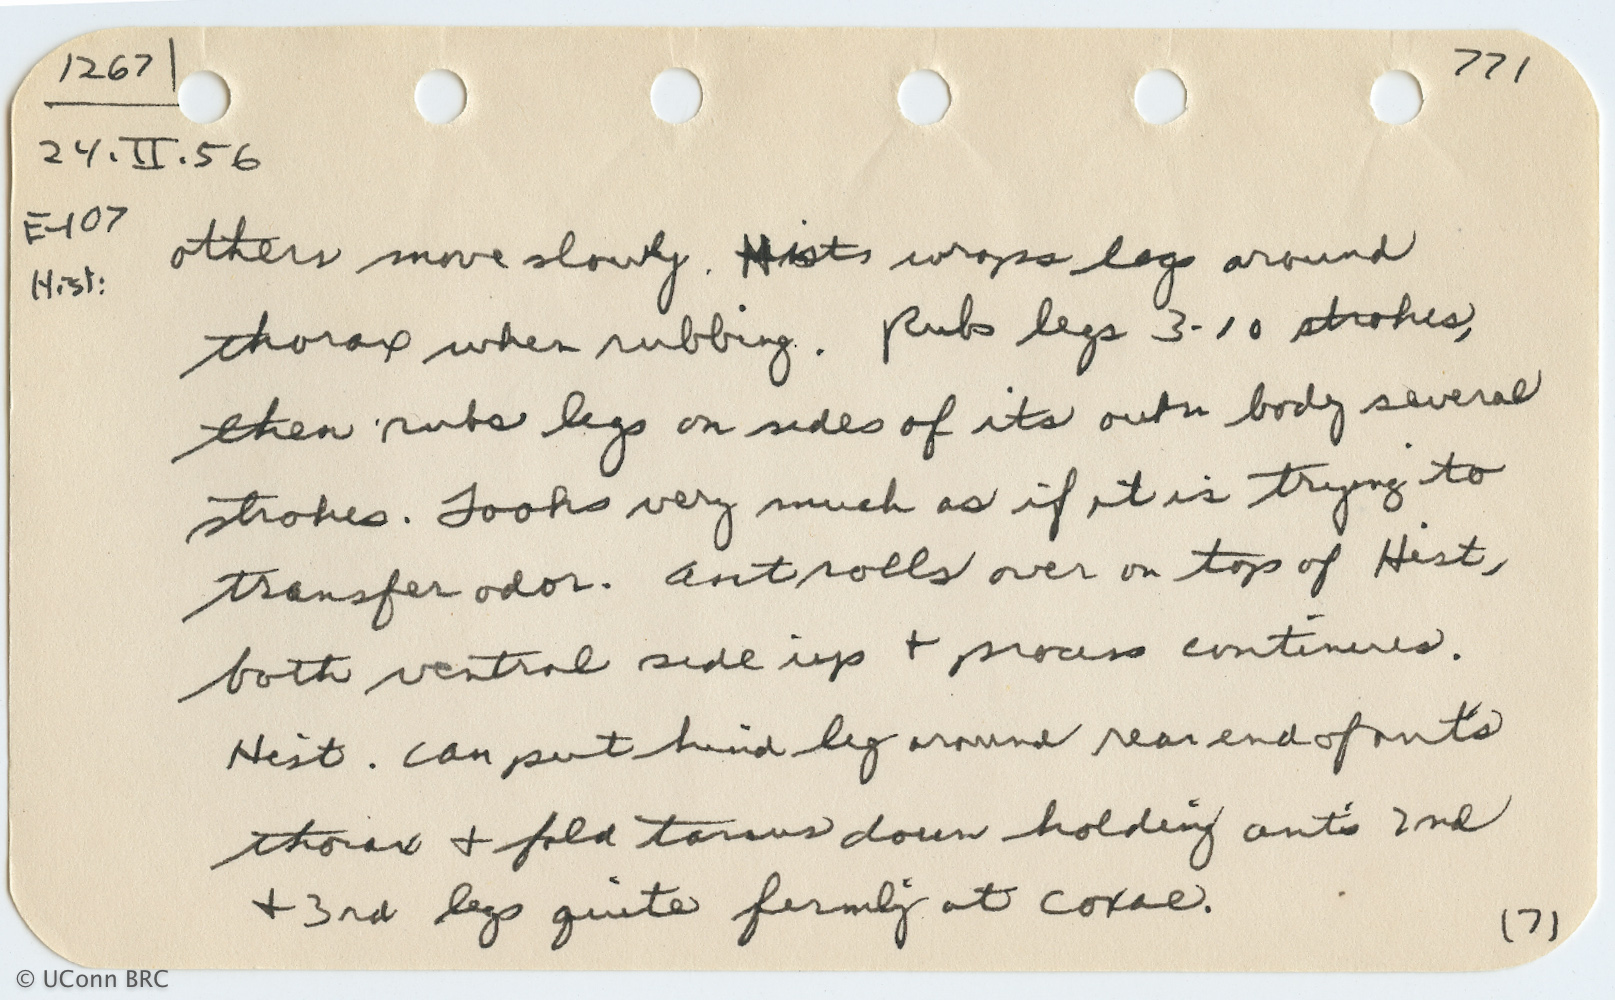 1267
771
24.II.56
E-107
Hist:
others move slowly. Hists wraps legs around
thorax when rubbing. Rubs legs 3-10 strokes,
then rubs legs on sides of its own body several
strokes. Looks very much as if it is trying to
transfer odor. Ant rolls over on top of Hist,
both ventral side up + process continues.
Hist. can put hind leg around rear end of ant's
thorax + fold tarsus down holding ant's 2nd
+ 3rd legs quite firmly at coxae.
(7)
© UConn BRC